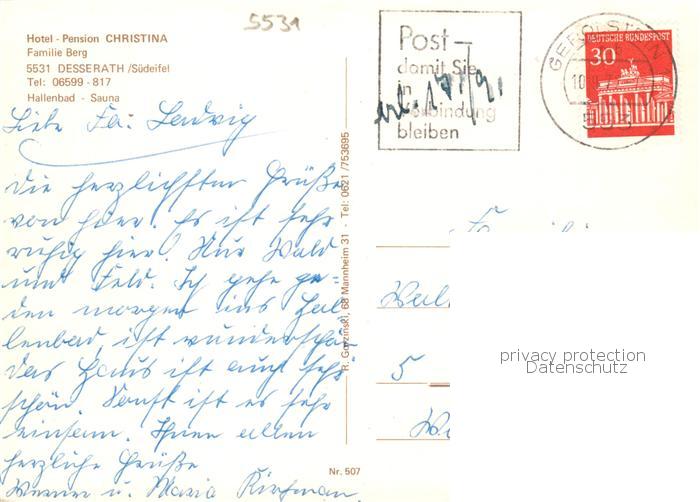 5531
Hotel - Pension CHRISTINA
Familie Berg
5531 DESSERATH /Südeifel
Tel: 06599 - 817
Hallenbad - Sauna
Post –
damit Sie
in
Verbindung
bleiben
GEROLSTEIN
DEUTSCHE BUNDESPOST
30
Liebe Fa: Ledwig
Die herzlichsten Grüße
von hier. Es ist sehr
ruhig hier! Nur Wald
und Feld. Ich gehe je-
den morgen ins Hal-
lenbad, ist wunderschön
das Haus ist auch sehr
schön. Sonst ist es sehr
einsam. Ihnen allen
herzliche Grüße
Werner u. Maria
R. Gorzinski, 68 Mannheim 31 - Tel: 0621 /753695
Nr. 507
5
privacy protection
Datenschutz